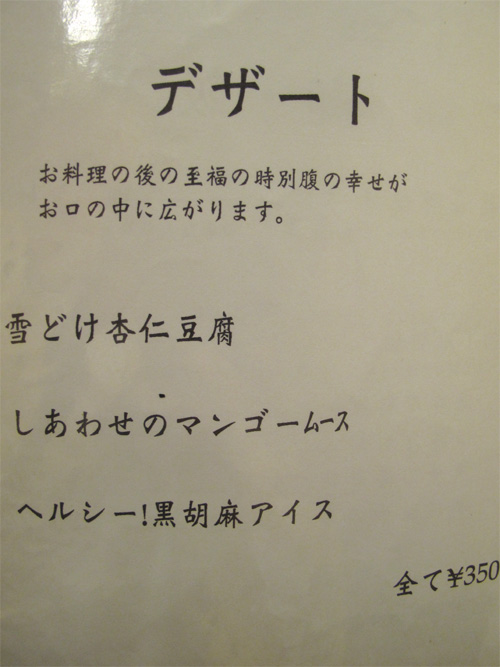 デザート
お料理の後の至福の時別腹の幸せが
お口の中に広がります。
雪どけ杏仁豆腐
しあわせのマンゴームース
ヘルシー!黒胡麻アイス
全て¥350